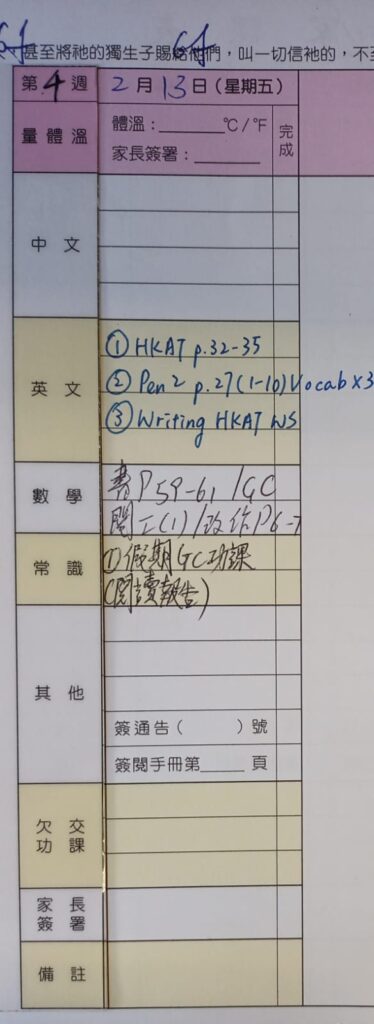 甚至將祂的獨生子賜給他們，叫一切信祂的，不至
第4週 2月13日(星期五)
量體溫 體溫：______℃/℉ 完成
家長簽署：______
中文
英文 ① HKAT p.32-35
② Pen 2 p.27(1-10) Vocab x3
③ Writing HKAT WS
數學 書P59-61/GC
(1)/改作P6-7
常識 ①假期GC功課
(閱讀報告)
其他
簽通告( )號
簽閱手冊第____頁
欠交功課
家長簽署
備註